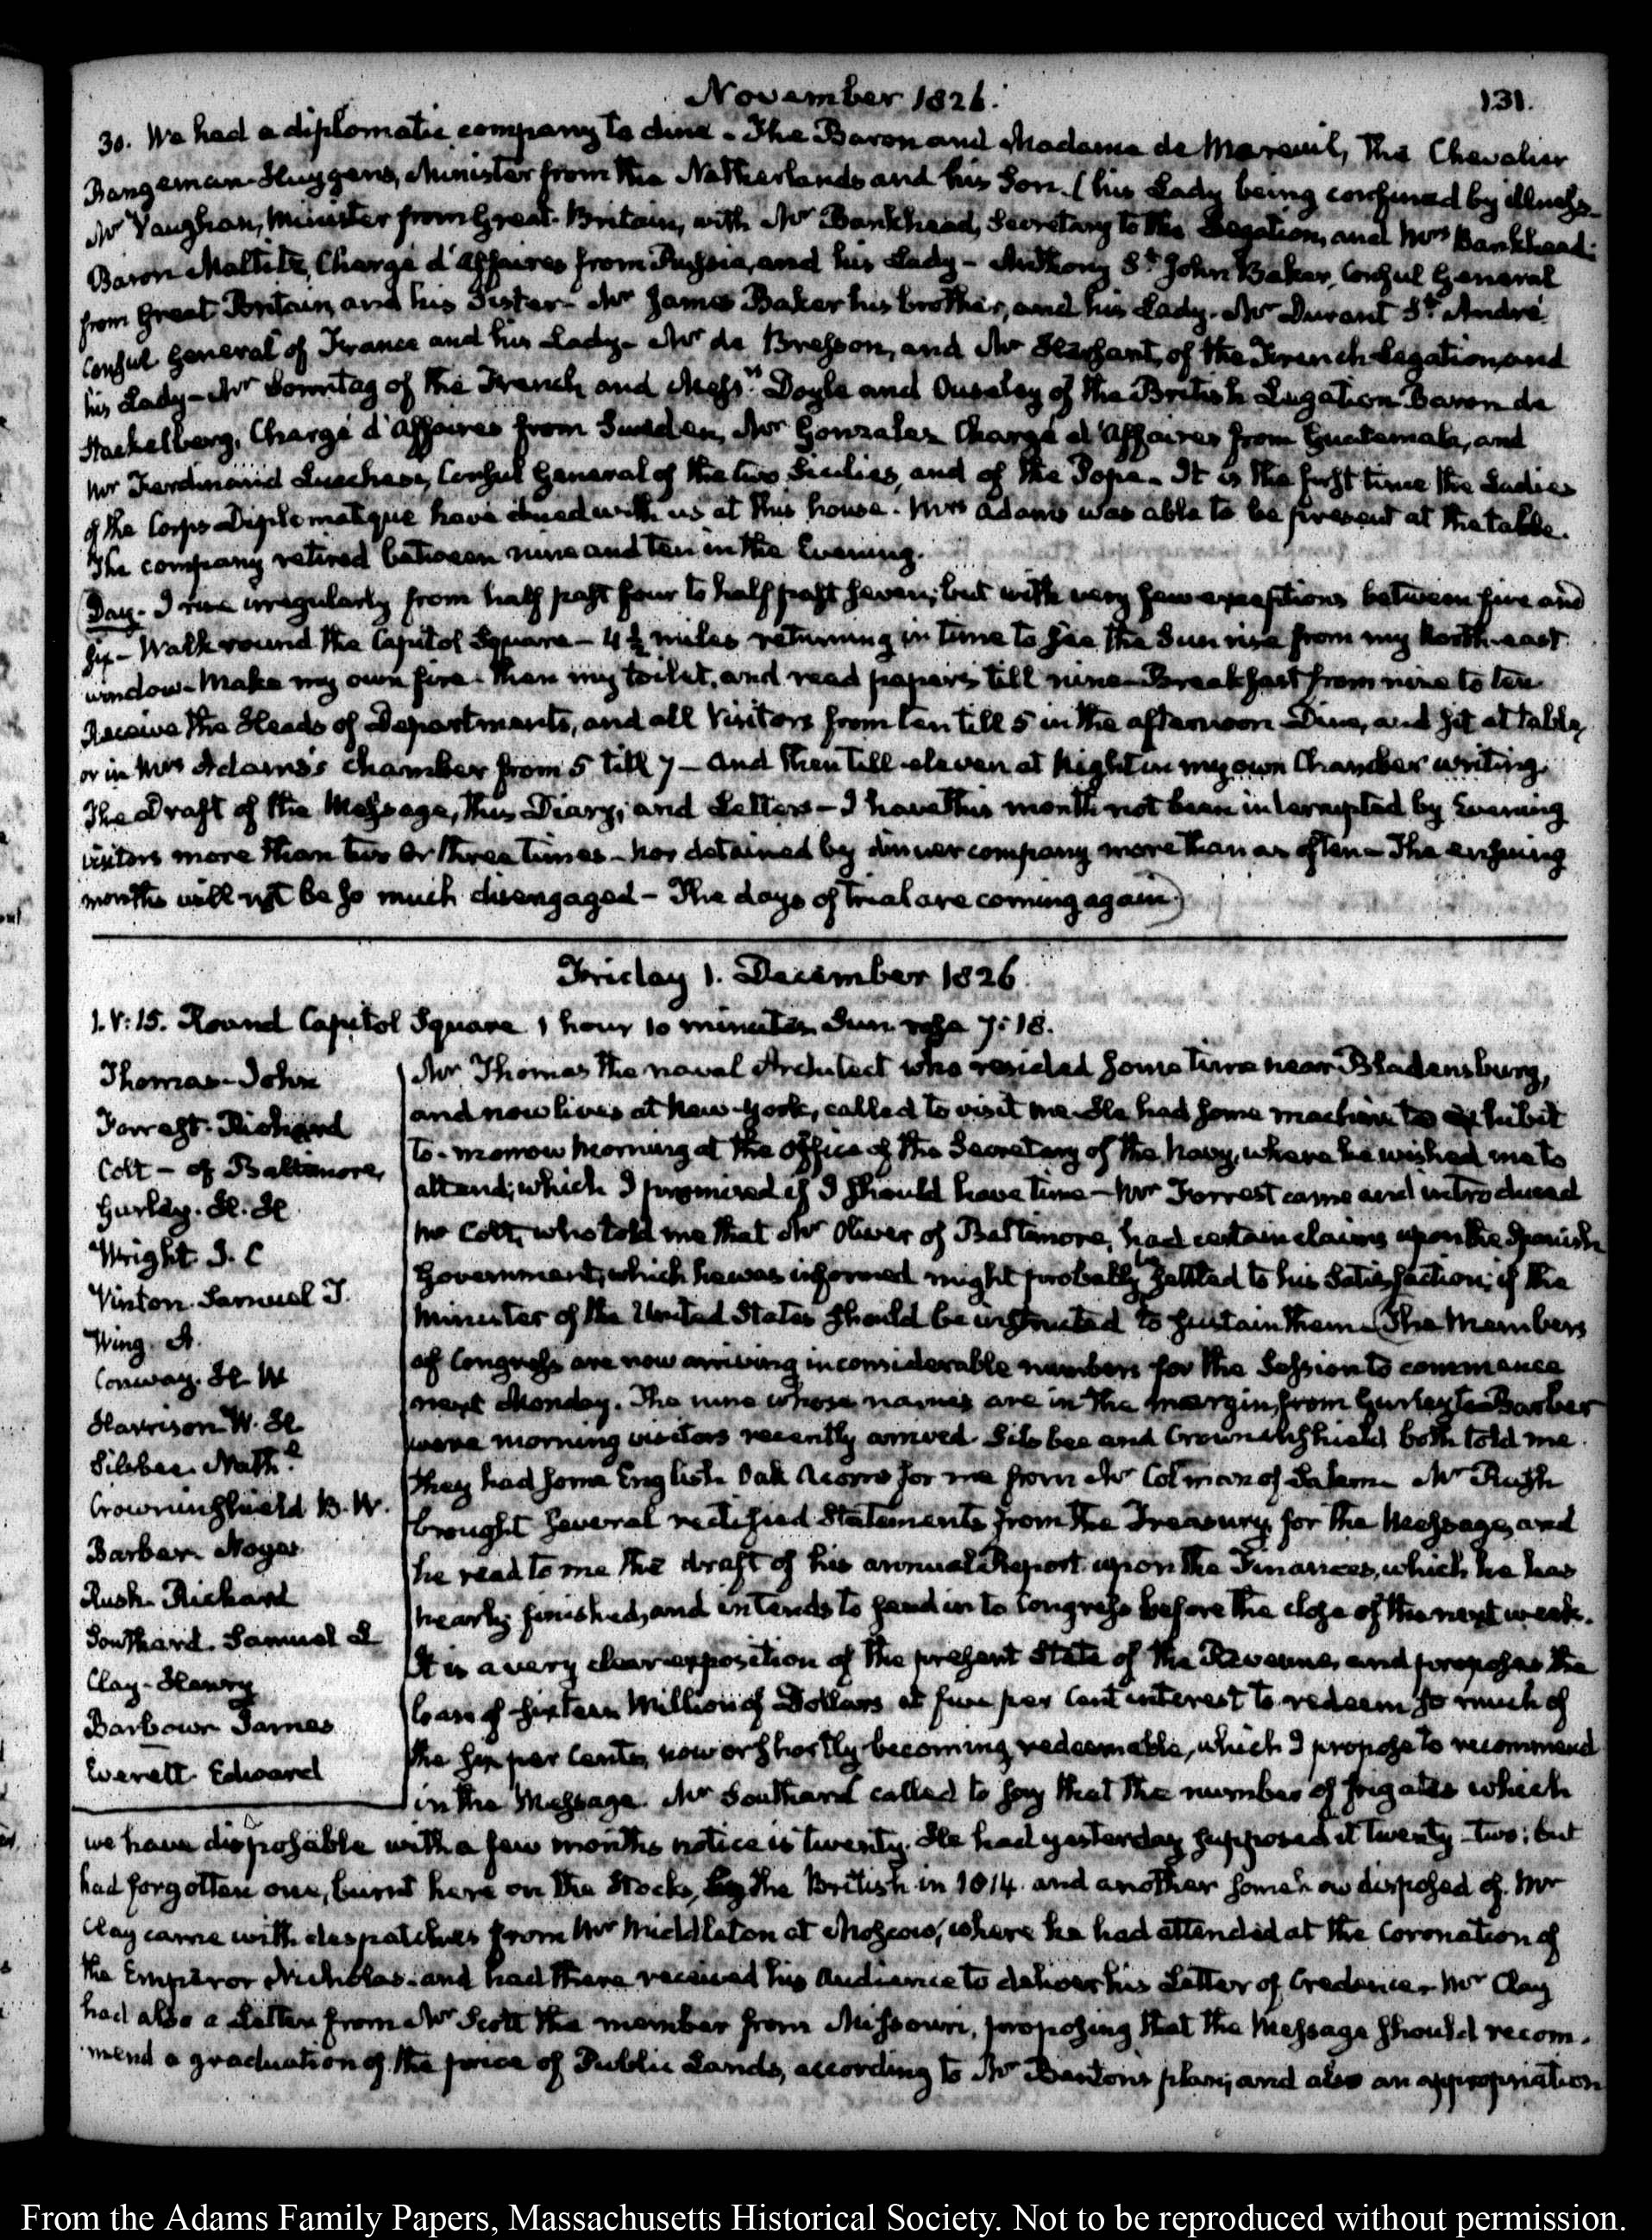 November 1826.
131.
30. We had a diplomatic company to dine - The Baron and Madame de Mareuil, The Chevalier
Bangeman Huygens, Minister from the Netherlands and his Son. (his Lady being confined by illness-
Mr Vaughan, Minister from Great-Britain, with Mr Bankhead, Secretary to the Legation, and Mrs Bankhead.
Baron Maltitz, Chargé d'Affaires from Russia, and his Lady - Anthony St John Baker, Consul General
from Great Britain, and his Sister - Mr James Baker his brother, and his Lady. Mr Durant St André
Consul General of France and his Lady - Mr de Bresson, and Mr Sergeant, of the French Legation, and
his Lady - Mr Sonntag of the French and Messrs Doyle and Ouseley of the British Legation Baron de
Stackelberg, Chargé d'Affaires from Sweden, Mr Gonzalez Chargé d'Affaires from Guatemala, and
Mr Ferdinand Lucchesi, Consul General of the two Sicilies, and of the Pope. It is the first time the Ladies
of the Corps Diplomatique have dined with us at this house. Mrs Adams was able to be present at the table.
The company retired between nine and ten in the Evening.
Day. I rise irregularly from half past four to half past seven; but with very few exceptions between five and
six - Walk round the Capitol Square - 4 ½ miles returning in time to see the Sun rise from my North-east
window. Make my own fire. Then my toilet, and read papers till nine - Breakfast from nine to ten
Receive the Heads of Departments, and all Visitors from ten till 5 in the afternoon - Dine, and sit at table,
or in Mrs Adams's chamber from 5 till 7 - And then till eleven at Night in my own Chamber writing.
The Draft of the Message, this Diary, and Letters - I have this month not been interrupted by Evening
visitors more than two or three times - Nor detained by dinner company more than as often - The ensuing
months will not be so much disengaged - The days of trial are coming again.)
Friday 1. December 1826.
1. V:15. Round Capitol Square 1 hour 10 minutes Sun rose 7:18.
Thomas - John
Forrest. Richard
Colt - of Baltimore,
Gurley. H. H.
Wright J. C
Vinton. Samuel F.
Wing. A.
Conway. H. W
Harrison W. H
Silsbee. Nathl
Crowninshield B. W.
Barber. Noyes
Rush. Richard
Southard. Samuel L
Clay - Henry
Barbour James
Everett. Edward
Mr Thomas the naval Architect who resided some time near Bladensburg,
and now lives at New-York, called to visit me. He had some machine to exhibit
to-morrow Morning at the Office of the Secretary of the Navy, where he wished me to
attend; which I promised if I should have time - Mr Forrest came and introduced
Mr Colt, who told me that Mr Oliver of Baltimore, had certain claims upon the Spanish
Government, which he was informed might probably be settled to his satisfaction, if the
Minister of the United States should be instructed to sustain them - (The Members
of Congress are now arriving in considerable numbers for the Session to commence
next Monday. The nine whose names are in the margin, from Gurley to Barber
were morning visitors recently arrived. Silsbee and Crowninshield both told me
they had some English Oak Acorns for me from Mr Colman of Salem - Mr Rush
brought several rectified Statements from the Treasury, for the Message, and
he read to me the draft of his annual Report upon the Finances, which he has
nearly finished, and intends to send in to Congress before the close of the next week.
It is a very clear exposition of the present State of the Revenue, and proposes the
loan of sixteen Million of Dollars at five per Cent interest to redeem so much of
the six per Cents, now or shortly becoming redeemable, which I propose to recommend
in the Message. Mr Southard called to say that the number of frigates which
we have disposable with a few months notice is twenty. He had yesterday supposed it twenty-two; but
had forgotten one, burnt here on the Stocks, by the British in 1814. and another somehow disposed of. Mr
Clay came with despatches from Mr Middleton at Moscow, where he had attended at the Coronation of
the Emperor Nicholas. and had there received his Audience to deliver his Letter of Credence. Mr Clay
had also a Letter from Mr Scott the member from Missouri, proposing that the Message should recom-
mend a graduation of the price of Public Lands, according to Mr Benton's plan; and also an appropriation
From the Adams Family Papers, Massachusetts Historical Society. Not to be reproduced without permission.